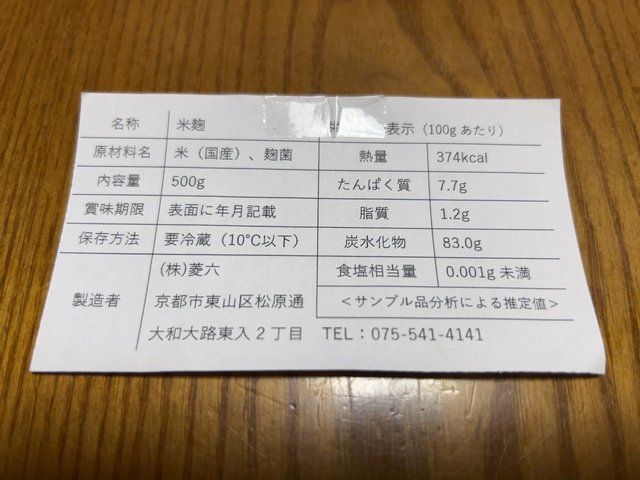 名称 米麹
原材料名 米（国産）、麹菌
内容量 500g
賞味期限 表面に年月記載
保存方法 要冷蔵（10℃以下）
製造者 (株)菱六
京都市東山区松原通
大和大路東入２丁目 TEL：075-541-4141
表示（100gあたり）
熱量 374kcal
たんぱく質 7.7g
脂質 1.2g
炭水化物 83.0g
食塩相当量 0.001g 未満
＜サンプル品分析による推定値＞